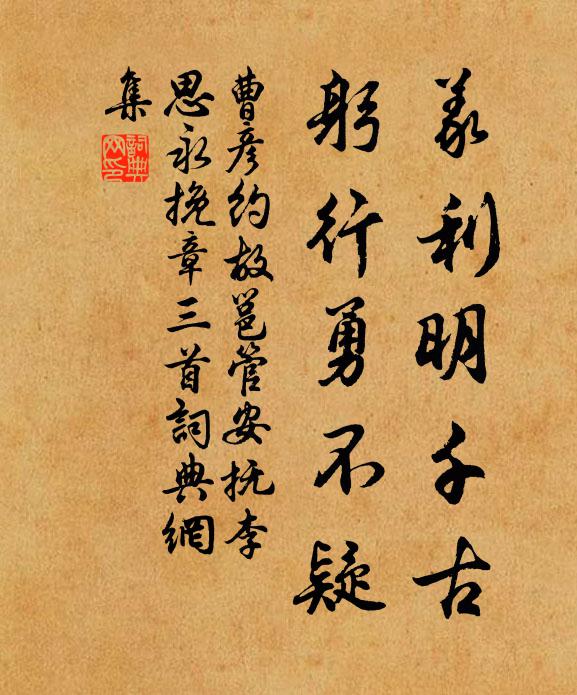 義利明千古
躬行勇不疑
曹彦約故邕管安抚李
思永挽章三首詞典網
集
詞典
网印